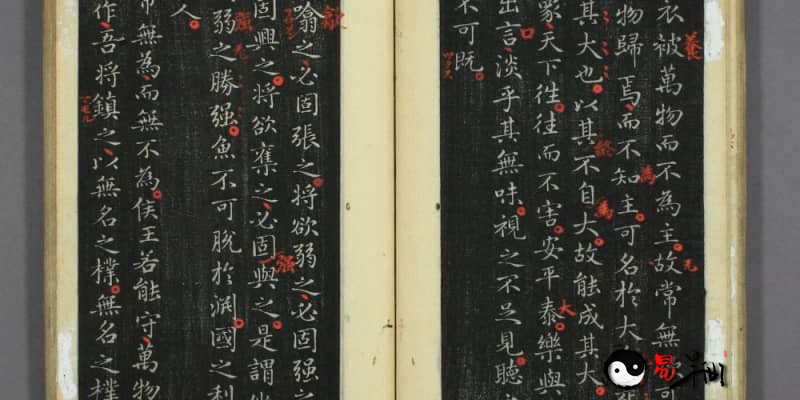 衣被萬物而不為主故常無
物歸焉而不知主可名於大
其大也以其不自大故能成其大
執
象天下往往而不害安平泰樂與
出言淡乎其無味視之不足見聽
不可既
噏之必固張之將欲弱之必固强之
固興之將欲奪之必固與之是謂
弱之勝强魚不可脫於淵國之利
人
常無為而無不為侯王若能守萬物
作吾將鎮之以無名之樸無名之樸